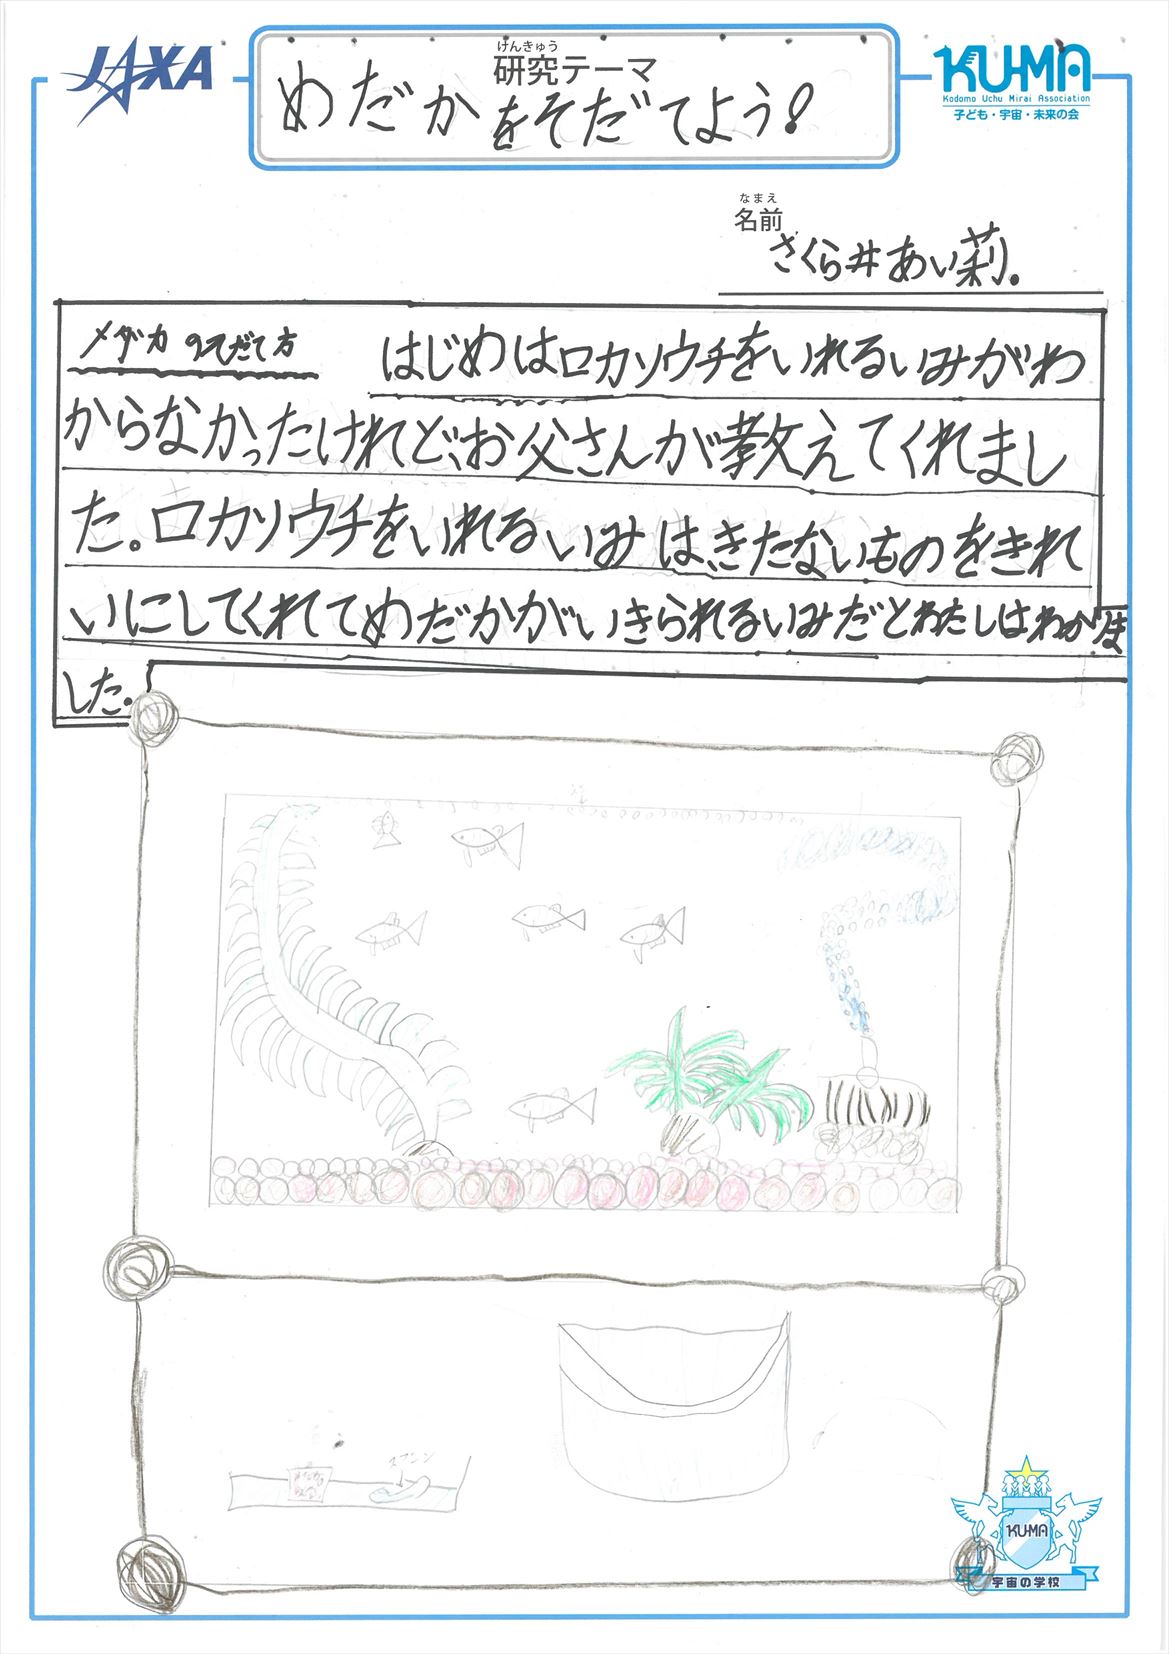 JAXA
けんきゅう
研究テーマ
めだかをそだてよう!
KU-MA
Kodomo Uchu Mirai Association
子ども・宇宙・未来の会
なまえ
名前
さくら井あい莉.
メダカのそだて方
はじめはロカソウチをいれるいみがわ
からなかったけれど、お父さんが教えてくれまし
た。ロカソウチをいれるいみは、きたないものをきれ
いにしてくれてめだかがいきられるいみだとわたしはわかりま
した.
スプーン
KU-MA
宇宙の学校